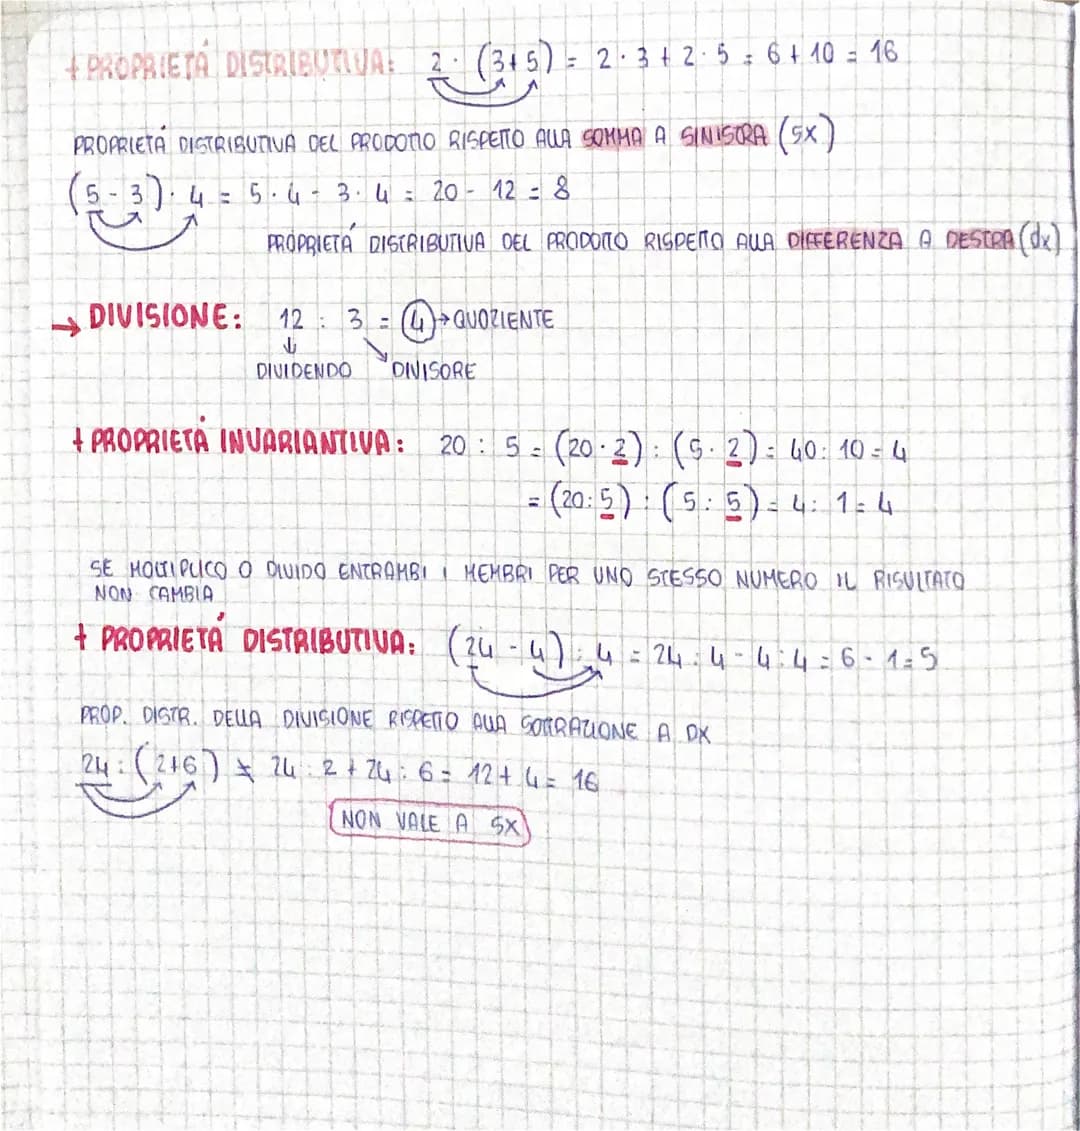 + PROPRIETÀ DISTRIBUTIVA: 2 · (3+5) = 2·3 + 2·5 = 6 + 10 = 16
PROPRIETÀ DISTRIBUTIVA DEL PRODOTTO RISPETTO ALLA SOMMA A SINISTRA (sx)
(5 - 3) · 4 = 5 · 4 - 3 · 4 = 20 - 12 = 8
PROPRIETÀ DISTRIBUTIVA DEL PRODOTTO RISPETTO ALLA DIFFERENZA A DESTRA (dx)
→ DIVISIONE: 12 : 3 = 4 → QUOZIENTE
↓ ↘
DIVIDENDO DIVISORE
+ PROPRIETÀ INVARIANTIVA: 20 : 5 = (20 · 2) : (5 · 2) = 40 : 10 = 4
= (20 : 5) : (5 : 5) = 4 : 1 = 4
SE MOLTIPLICO O DIVIDO ENTRAMBI I MEMBRI PER UNO STESSO NUMERO IL RISULTATO
NON CAMBIA
+ PROPRIETÀ DISTRIBUTIVA: (24 - 4) : 4 = 24 : 4 - 4 : 4 = 6 - 1 = 5
PROP. DISTR. DELLA DIVISIONE RISPETTO ALLA SOTTRAZIONE A DX
24 : (2+6) ≠ 24 : 2 + 24 : 6 = 12 + 4 = 16
NON VALE A SX